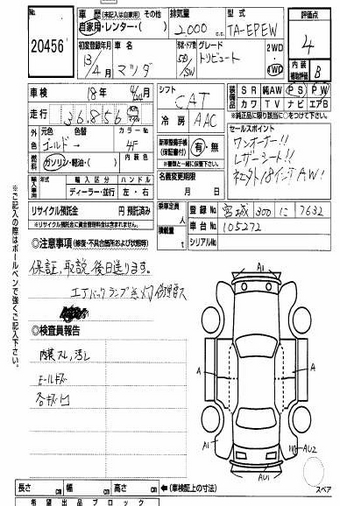 出品番号
20456
車歴 (未記入は自家用) その他
自家用・レンター・( )
排気量
2,000 cc
型式
TA-EPEW
評価点
4
初度登録年月
13/4月
車名
マツダ
ドア・形状
5D/SW
グレード
トリビュート
2WD
4WD
内装補助評価
B
車検
18年 4月
走行
36,856
シフト
CAT
冷房
AAC
装備品
SR 純AW PS PW
カワ TV ナビ エアB
外色
元色 色替 カラーNo.
ゴールド → 4F
燃料
ガソリン・軽油・( )
内装色
新車整備手帳 (保証書付)
有・無
セールスポイント
ワンオーナー!!
レザーシート!!
社外18インチAW!
輸入車
輸入区分 ハンドル
ディーラー・並行 左・右
名義変更期限
月 日
リサイクル預託金 円 預託済み
乗車定員 人
積載量 t
登録No. 宮城 300 に 7632
車台No. 105272
シリアルNo.
◎注意事項 (修復・不具合箇所および状態等)
保証、取説 後日送ります。
エアバックランプ点灯
◎検査員報告
内装スレ、汚レ
モールドキズ
各キズ凹
A1
A
A
A1
AU2
AU1
スペア
長さ cm 幅 cm 高さ cm ←(車検証上の寸法)
希望出品ブロック
※ご記入の際はボールペンで強くご記入下さい。